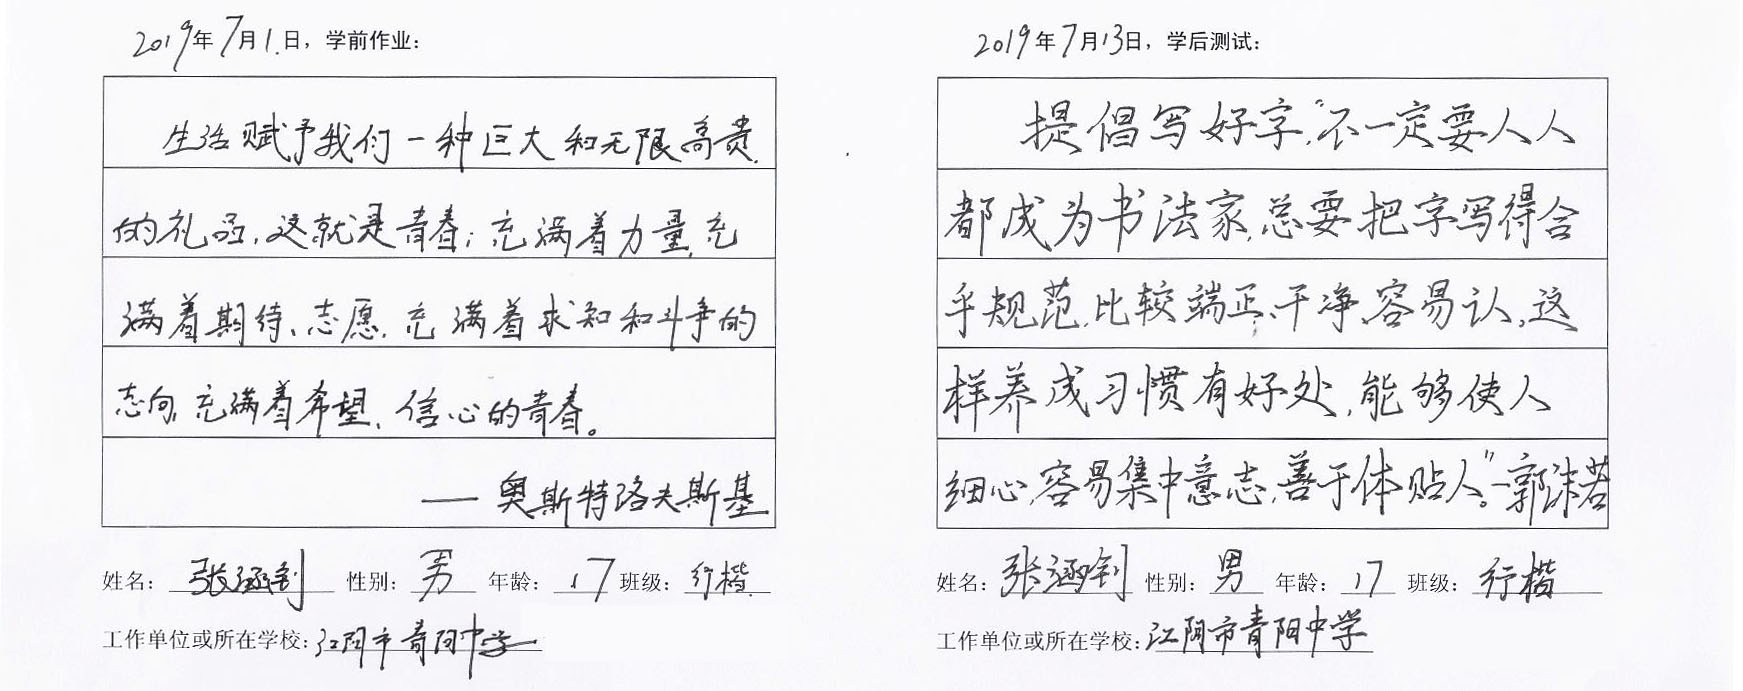 2019年7月1日，学前作业：
生活赋予我们一种巨大和无限高贵
的礼品，这就是青春：充满着力量，充
满着期待、志愿，充满着求知和斗争的
志向，充满着希望、信心的青春。
——奥斯特洛夫斯基
姓名：张涵钊 性别：男 年龄：17 班级：行楷
工作单位或所在学校：江阴市青阳中学
2019年7月13日，学后测试：
提倡写好字，“不一定要人人
都成为书法家，总要把字写得合
乎规范，比较端正、干净、容易认，这
样养成习惯有好处，能够使人
细心，容易集中意志，善于体贴人。”—郭沫若
姓名：张涵钊 性别：男 年龄：17 班级：行楷
工作单位或所在学校：江阴市青阳中学